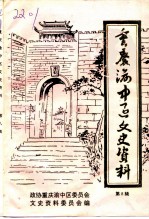 重庆渝中区文史资料
第8辑
政协重庆渝中区委员会
文史资料委员会编